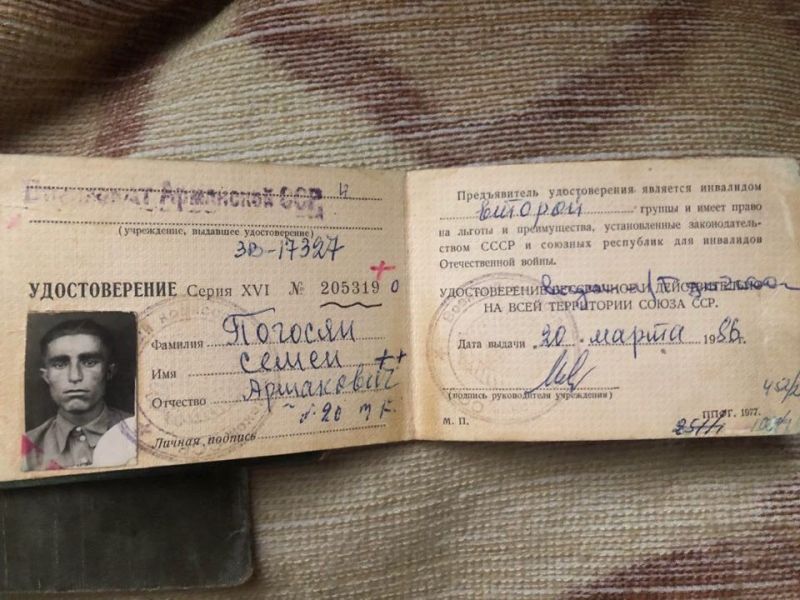 Армянской ССР
(учреждение, выдавшее удостоверение)
ЗВ-17327
УДОСТОВЕРЕНИЕ Серия XVI № 205319
Фамилия Погосян
Имя Семен
Отчество Аршакович
Личная подпись
Предъявитель удостоверения является инвалидом
второй группы и имеет право
на льготы и преимущества, установленные законодатель-
ством СССР и союзных республик для инвалидов
Отечественной войны.
УДОСТОВЕРЕНИЕ БЕССРОЧНОЕ И ДЕЙСТВИТЕЛЬНО
НА ВСЕЙ ТЕРРИТОРИИ СОЮЗА ССР.
Дата выдачи 20 марта 1986 г.
(подпись руководителя учреждения)
М. П.
ППФГ. 1977.